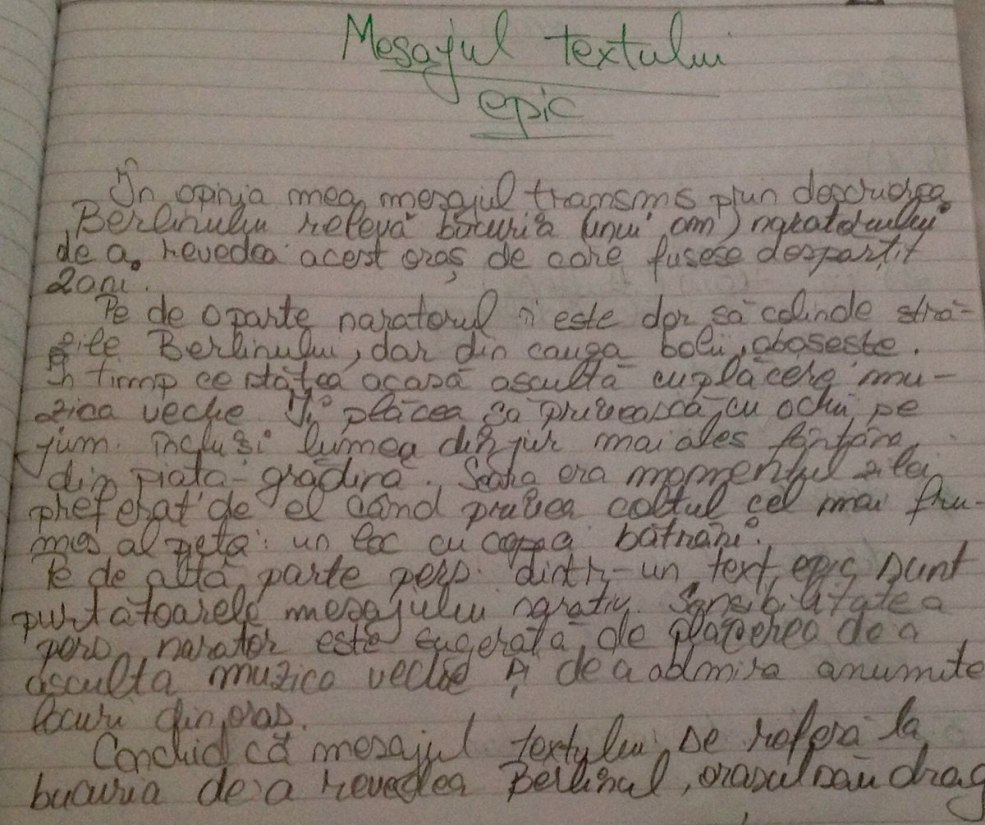 Mesajul textului
epic
În opinia mea, mesajul transmis prin descrierea
Berlinului relevă bucuria unui om, naratorului
de a revedea acest oraș de care fusese despărțit
2 ani.
Pe de o parte naratorul îi este dor să colinde stră-
zile Berlinului, dar din cauza bolii, obosește.
În timp ce stătea acasă ascultă cu plăcere mu-
zica veche. Îi plăcea să privească, cu ochii pe
jum. închiși lumea din jur mai ales fântâna
din piața-grădină. Seara era momentul zilei
preferat de el când privea colțul cel mai fru-
mos al pieței: un loc cu copaci bătrâni.
Pe de altă parte pers. dintr-un text epic sunt
purtătoarele mesajului narativ. Sensibilitatea
pers. narator este sugerată de plăcerea de a
asculta muzica veche și de a admira anumite
locuri din oraș.
Conchid că mesajul textului se referă la
bucuria de a revedea Berlinul, orașul său drag